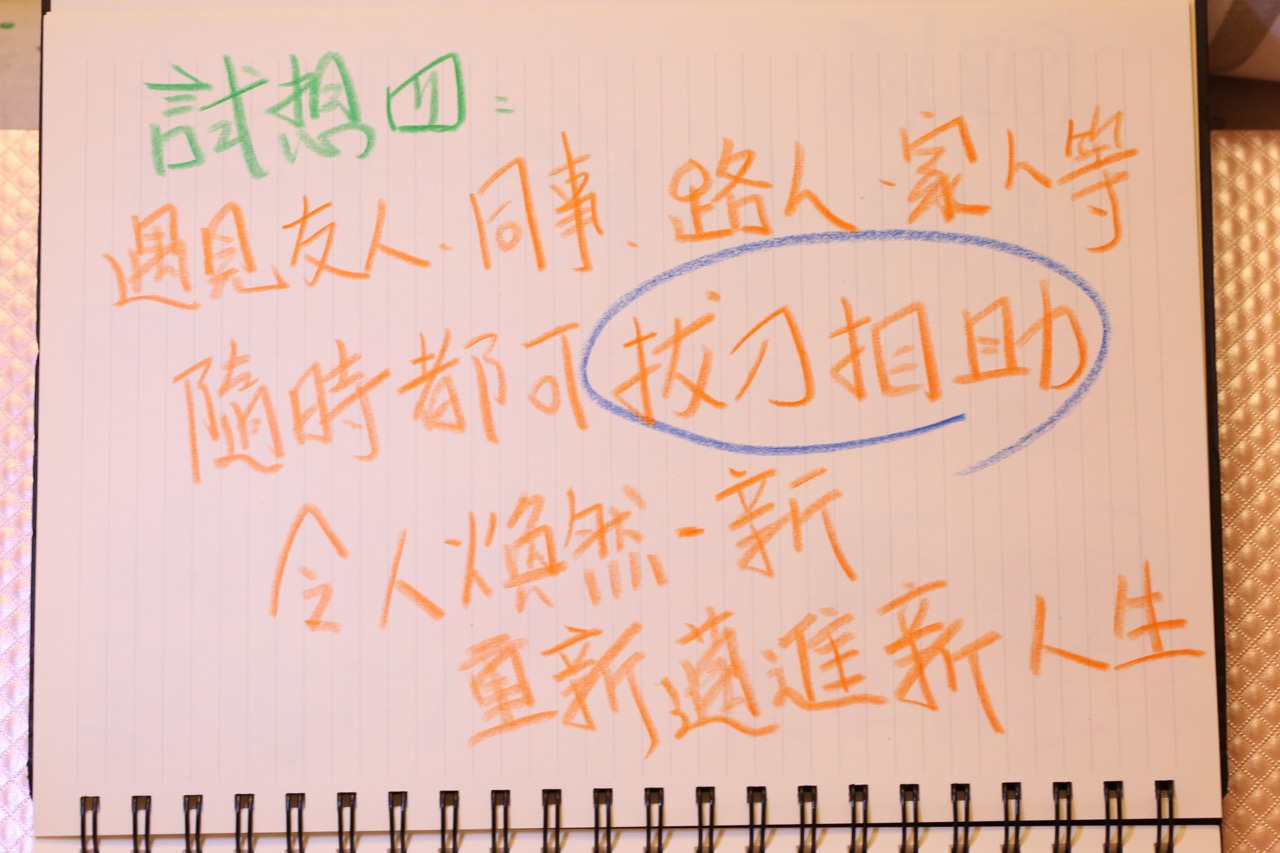 試想四：
遇見友人、同事、路人、家人等
隨時都可拔刀相助
令人煥然一新
重新邁進新人生